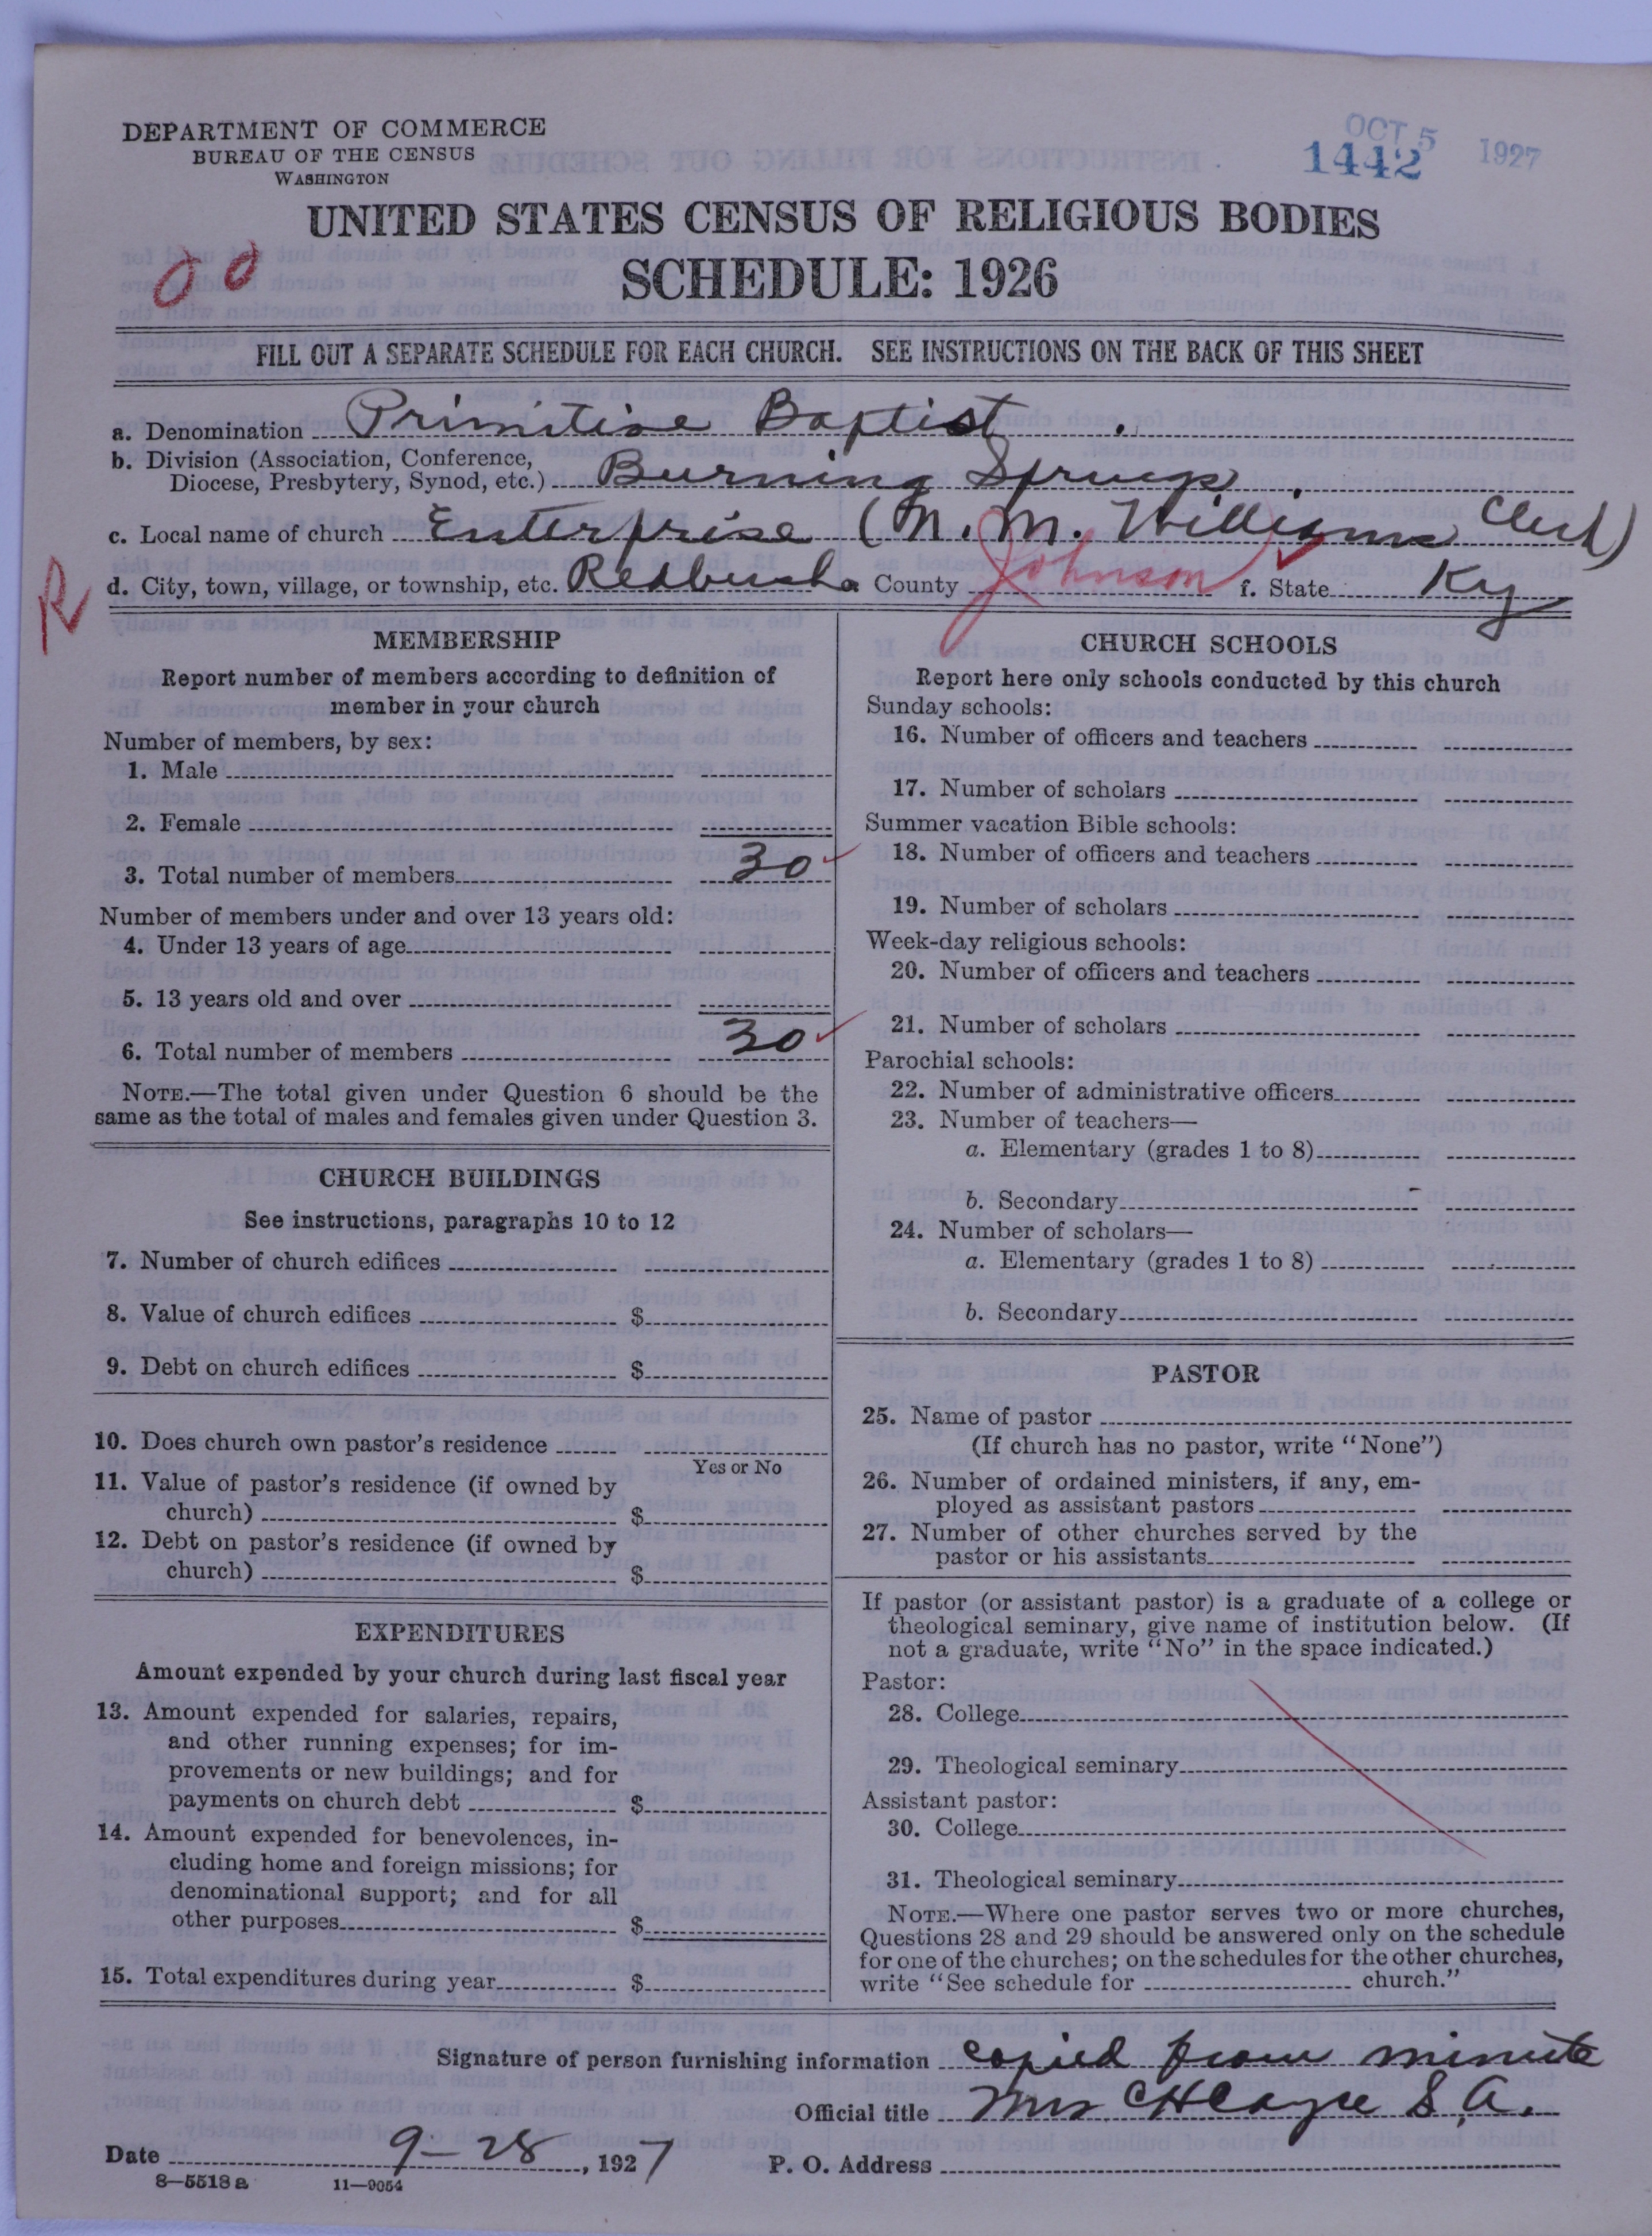 DEPARTMENT OF COMMERCE
BUREAU OF THE CENSUS
WASHINGTON
OCT 5 1927
1442
UNITED STATES CENSUS OF RELIGIOUS BODIES
SCHEDULE: 1926
FILL OUT A SEPARATE SCHEDULE FOR EACH CHURCH. SEE INSTRUCTIONS ON THE BACK OF THIS SHEET
a. Denomination Primitive Baptist
b. Division (Association, Conference,
Diocese, Presbytery, Synod, etc.) Burning Springs
c. Local name of church Enterprise (M. M. Williams Clerk)
R
d. City, town, village, or township, etc. Redbush e. County Johnson f. State Ky
MEMBERSHIP
Report number of members according to definition of
member in your church
Number of members, by sex:
1. Male
2. Female
3. Total number of members 30
Number of members under and over 13 years old:
4. Under 13 years of age
5. 13 years old and over
6. Total number of members 30
NOTE.—The total given under Question 6 should be the
same as the total of males and females given under Question 3.
CHURCH BUILDINGS
See instructions, paragraphs 10 to 12
7. Number of church edifices
8. Value of church edifices $
9. Debt on church edifices $
10. Does church own pastor's residence
Yes or No
11. Value of pastor's residence (if owned by
church) $
12. Debt on pastor's residence (if owned by
church) $
EXPENDITURES
Amount expended by your church during last fiscal year
13. Amount expended for salaries, repairs,
and other running expenses; for im-
provements or new buildings; and for
payments on church debt $
14. Amount expended for benevolences, in-
cluding home and foreign missions; for
denominational support; and for all
other purposes $
15. Total expenditures during year $
CHURCH SCHOOLS
Report here only schools conducted by this church
Sunday schools:
16. Number of officers and teachers
17. Number of scholars
Summer vacation Bible schools:
18. Number of officers and teachers
19. Number of scholars
Week-day religious schools:
20. Number of officers and teachers
21. Number of scholars
Parochial schools:
22. Number of administrative officers
23. Number of teachers—
a. Elementary (grades 1 to 8)
b. Secondary
24. Number of scholars—
a. Elementary (grades 1 to 8)
b. Secondary
PASTOR
25. Name of pastor
(If church has no pastor, write "None")
26. Number of ordained ministers, if any, em-
ployed as assistant pastors
27. Number of other churches served by the
pastor or his assistants
If pastor (or assistant pastor) is a graduate of a college or
theological seminary, give name of institution below. (If
not a graduate, write "No" in the space indicated.)
Pastor:
28. College
29. Theological seminary
Assistant pastor:
30. College
31. Theological seminary
NOTE.—Where one pastor serves two or more churches,
Questions 28 and 29 should be answered only on the schedule
for one of the churches; on the schedules for the other churches,
write "See schedule for church."
Signature of person furnishing information copied from minute
Official title Mrs S. A.
Date 9-28, 1927 P. O. Address
8—5518 a 11—9054